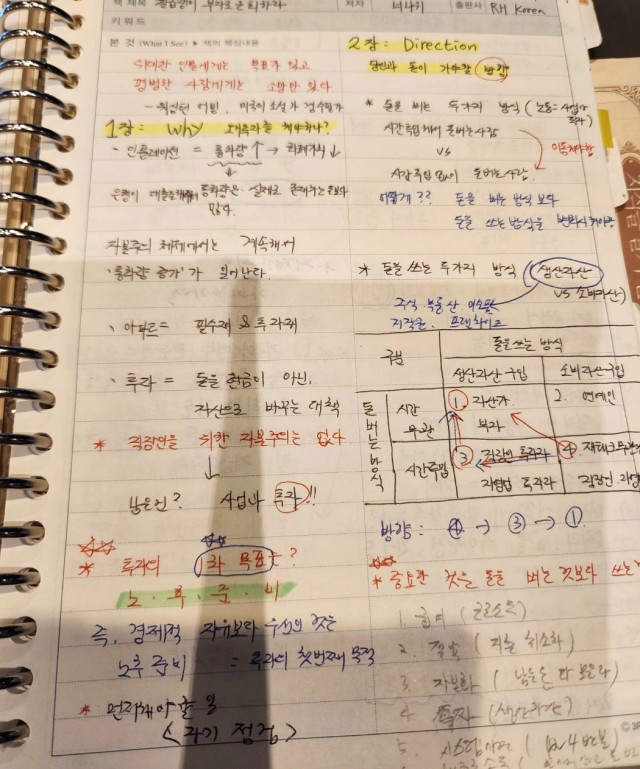 책 제목 월급쟁이 부자로 은퇴하라
저자 너나위
출판사 RH Korea
키워드
본 것 (What I See) ▶ 책의 핵심내용
위대한 인물에게는 목표가 있고
평범한 사람에게는 소망만 있다
- 워싱턴 어빙, 미국의 소설가 겸 수필가
1장: Why
· 인플레이션 = 통화량↑ → 화폐가치↓
은행이 통화량은 실제로 존재하는 돈보다
많다.
자본주의 체제에서는 계속해서
'통화량 증가'가 일어난다.
· 아파트 = 필수재 & 투자재
· 투자 = 돈을 현금이 아닌,
자산으로 바꾸는 대책
* 직장인을 위한 자본주의는 없다
↓
남은건? 사업과 투자!!
* 투자의 1차 목표는?
노·후·준·비
즉, 경제적 자유보다 우선인 것은
노후준비 = 투자의 첫번째 목적
* 먼저해야할 일
<자기 점검>
2장: Direction
당신과 돈이 가야할 방향
* 돈을 버는 두가지 방식 (노동=사업과
투자)
시간투입해서 돈버는사람
VS
시간투입 없이 돈버는사람.
이동해야함
어떻게?? 돈을 버는 방식보다
돈을 쓰는 방식을 변화시켜야함
* 돈을 쓰는 두가지 방식 (생산자산
VS 소비자산)
주식·부동산
저작권, 프랜차이즈
구분 돈을 쓰는 방식
생산자산 구입 소비자산 구입
돈 버는 방식
시간 무관 1. 자산가 부자 2. 연예인
시간투입 3 직장인 투자자 4. 재테크무관
자영업 투자자 직장인 자영
방향: ④ → ③ → ①.
* 중요한 것은 돈을 버는 것보다 쓰는
1. 급여 (근로소득)
2. 저축 (지출 최소화)
3. 자본화 (남는돈 다 모은다)
4. 투자 (생산자산)
5. 시스템 4 반복